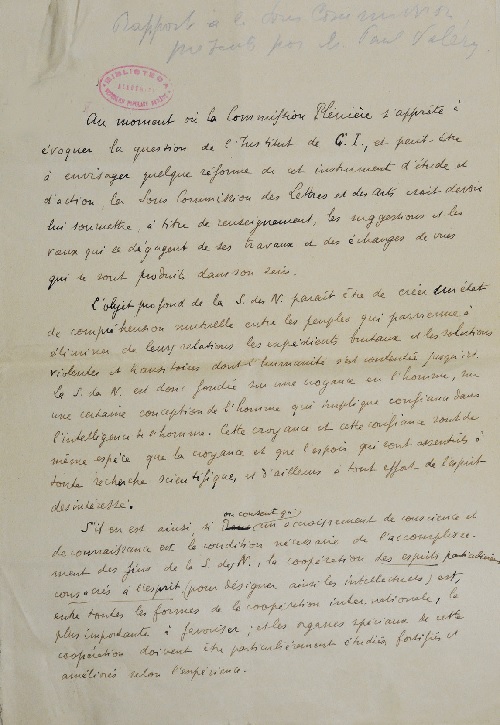 Rapport à la Sous Commission
présenté par M. Paul Valéry
BIBLIOTECA
Au moment où la Commission Plénière s'apprête à
évoquer la question de l'Institut de C.I., et peut-être
à envisager quelque réforme de cet instrument d'étude et
d'action la Sous Commission des Lettres et des Arts croit devoir
lui soumettre, à titre de renseignement, les suggestions et les
vœux qui se dégagent de ses travaux et des échanges de vues
qui se sont produits dans son sein.
L'objet profond de la S. des N. paraît être de créer un état
de compréhension mutuelle entre les peuples qui parvienne à
éliminer de leurs relations les expédients brutaux et les solutions
violentes et transitoires dont l'humanité s'est contentée jusqu'ici.
La S. des N. est donc fondée sur une croyance en l'homme, sur
une certaine conception de l'homme qui implique confiance dans
l'intelligence de l'homme. Cette croyance et cette confiance sont de
même espèce que la croyance et que l'espoir qui sont essentiels à
toute recherche scientifique et d'ailleurs à tout effort de l'esprit
désintéressé.
on consent qu'
S'il en est ainsi, si un accroissement de conscience et
de connaissance est la condition nécessaire de l'accomplisse-
ment des fins de la S. des N., la coopération des esprits particulièrement
consacrés à l'esprit (pour désigner ainsi les intellectuels) est,
entre toutes les formes de la coopération internationale, la
plus importante à favoriser ; et les organes spéciaux de cette
coopération doivent être particulièrement étudiés, fortifiés et
améliorés selon l'expérience.